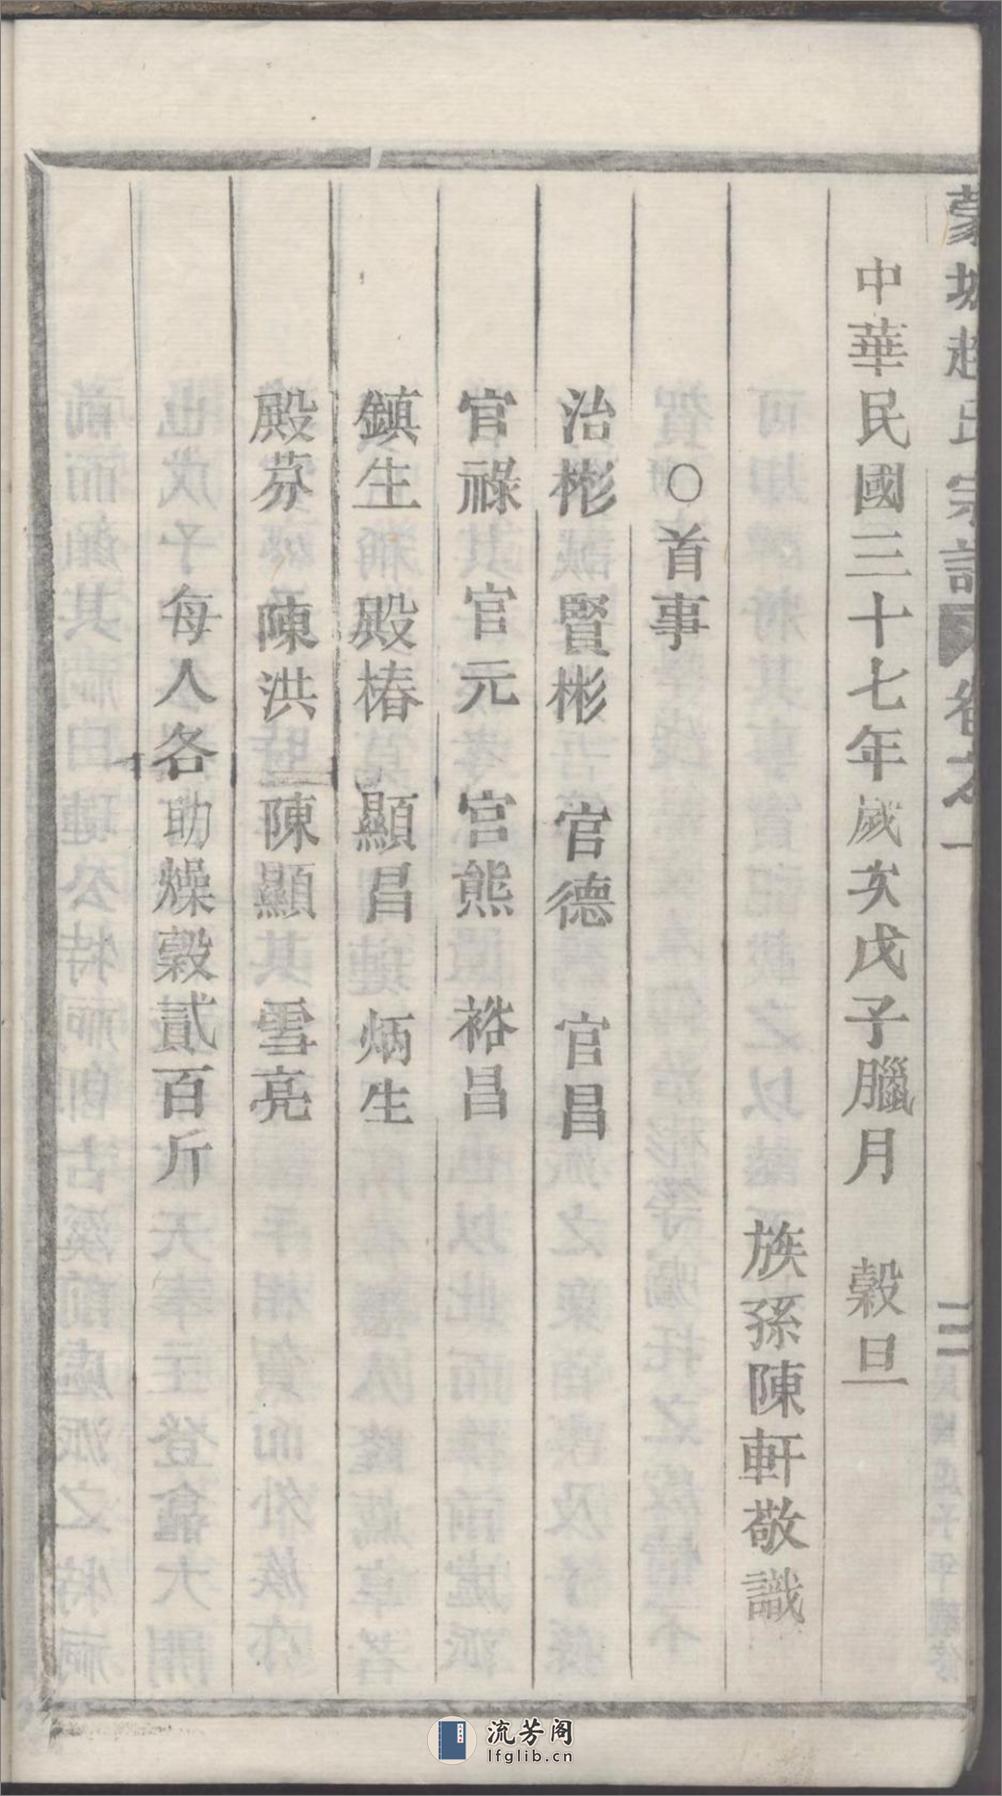 蒙城趙氏宗譜 卷之一 三
中華民國三十七年歲次戊子臘月 穀旦
族孫陳軒敬識
○首事
治彬 賢彬 官德 官昌
官祿 官元 官熊 裕昌
鎮生 殿椿 顯昌 炳生
殿芬 陳洪 陳顯 雪亮
每人各助燥穀貳百斤
流芳阁
lfglib.cn